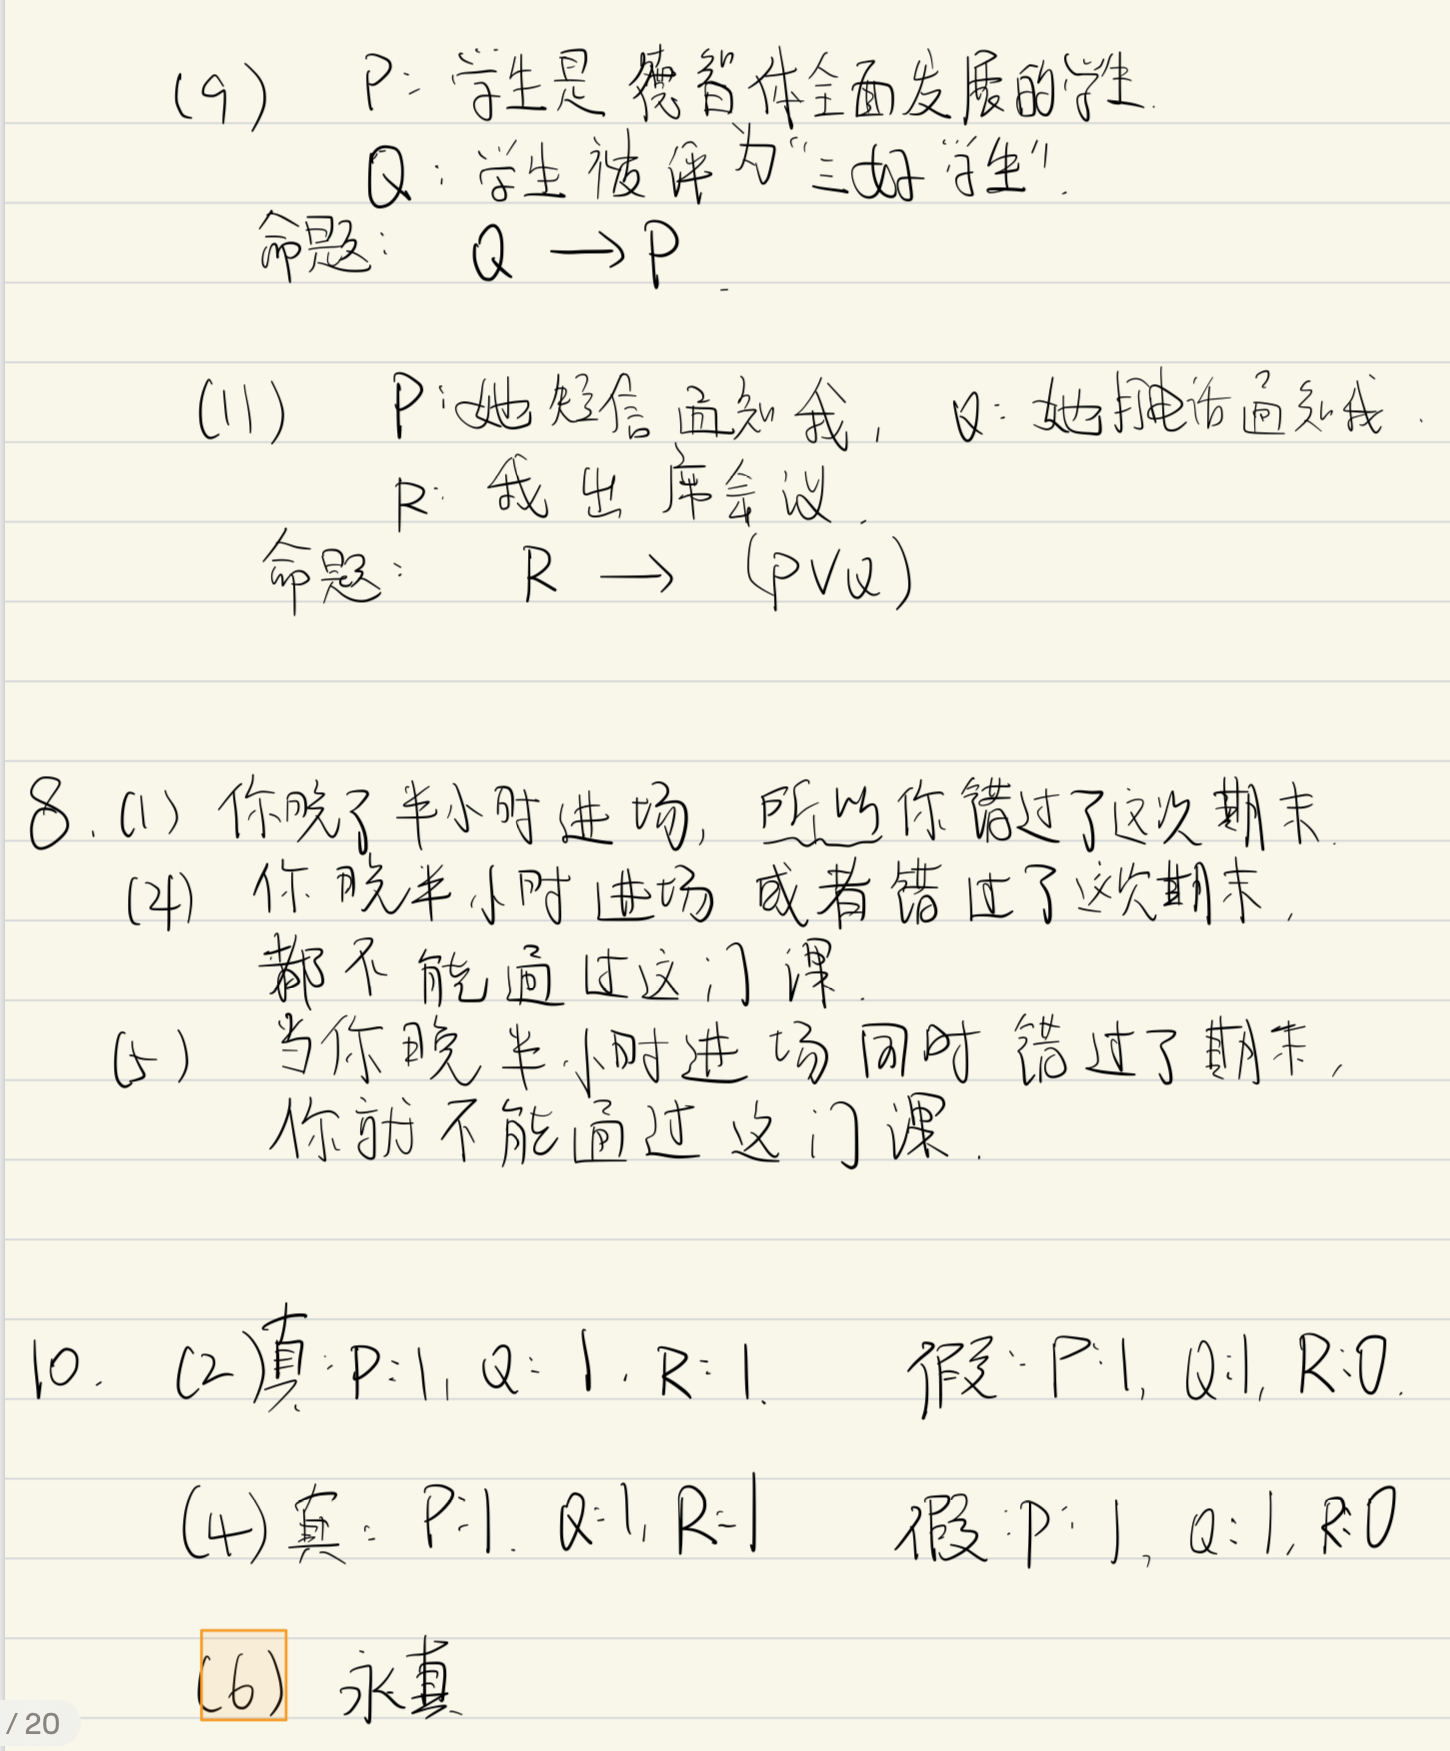 (9) P: 学生是德智体全面发展的学生.
Q: 学生被评为“三好学生”.
命题: Q → P.
(11) P: 她短信通知我, Q: 她打电话通知我.
R: 我出席会议.
命题: R → (P∨Q)
8. (1) 你晚了半小时进场, 所以你错过了这次期末.
(4) 你晚半小时进场或者错过了这次期末,
都不能通过这门课.
(5) 当你晚半小时进场同时错过了期末,
你就不能通过这门课.
10. (2) 真: P:1, Q:1, R:1. 假: P:1, Q:1, R:0.
(4) 真: P:1. Q:1, R:1 假: P:1, Q:1, R:0
(6) 永真
/ 20